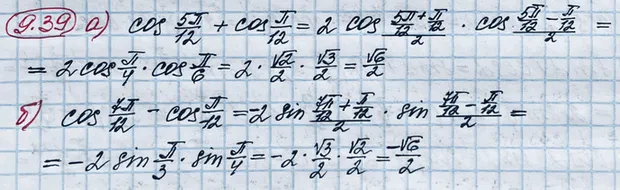 9.39 а) cos 5π/12 + cos π/12 = 2 cos (5π/12 + π/12)/2 · cos (5π/12 − π/12)/2 =
= 2 cos π/4 · cos π/6 = 2 · √2/2 · √3/2 = √6/2
б) cos 7π/12 − cos π/12 = −2 sin (7π/12 + π/12)/2 · sin (7π/12 − π/12)/2 =
= −2 sin π/3 · sin π/4 = −2 · √3/2 · √2/2 = −√6/2